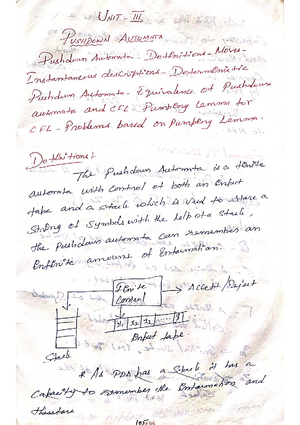 UNIT - III
PUSHDOWN AUTOMATA
Pushdown Automata - Definitions - Moves -
Instantaneous descriptions - Deterministic
Pushdown Automata - Equivalence of Pushdown
automata and CFL - Pumping lemma for
CFL - Problems based on Pumping Lemma.
Definitions:
The Pushdown Automata is a finite
automata with control of both an input
tape and a stack which is used to store a
string of symbols with the help of a stack,
the pushdown automata can remember an
infinite amounts of information.
Finite
Control
→ Accept/Reject
x1 x2 $
Input tape
Stack
* As PDA has a stack it has a
capacity to remember the information and
therefore